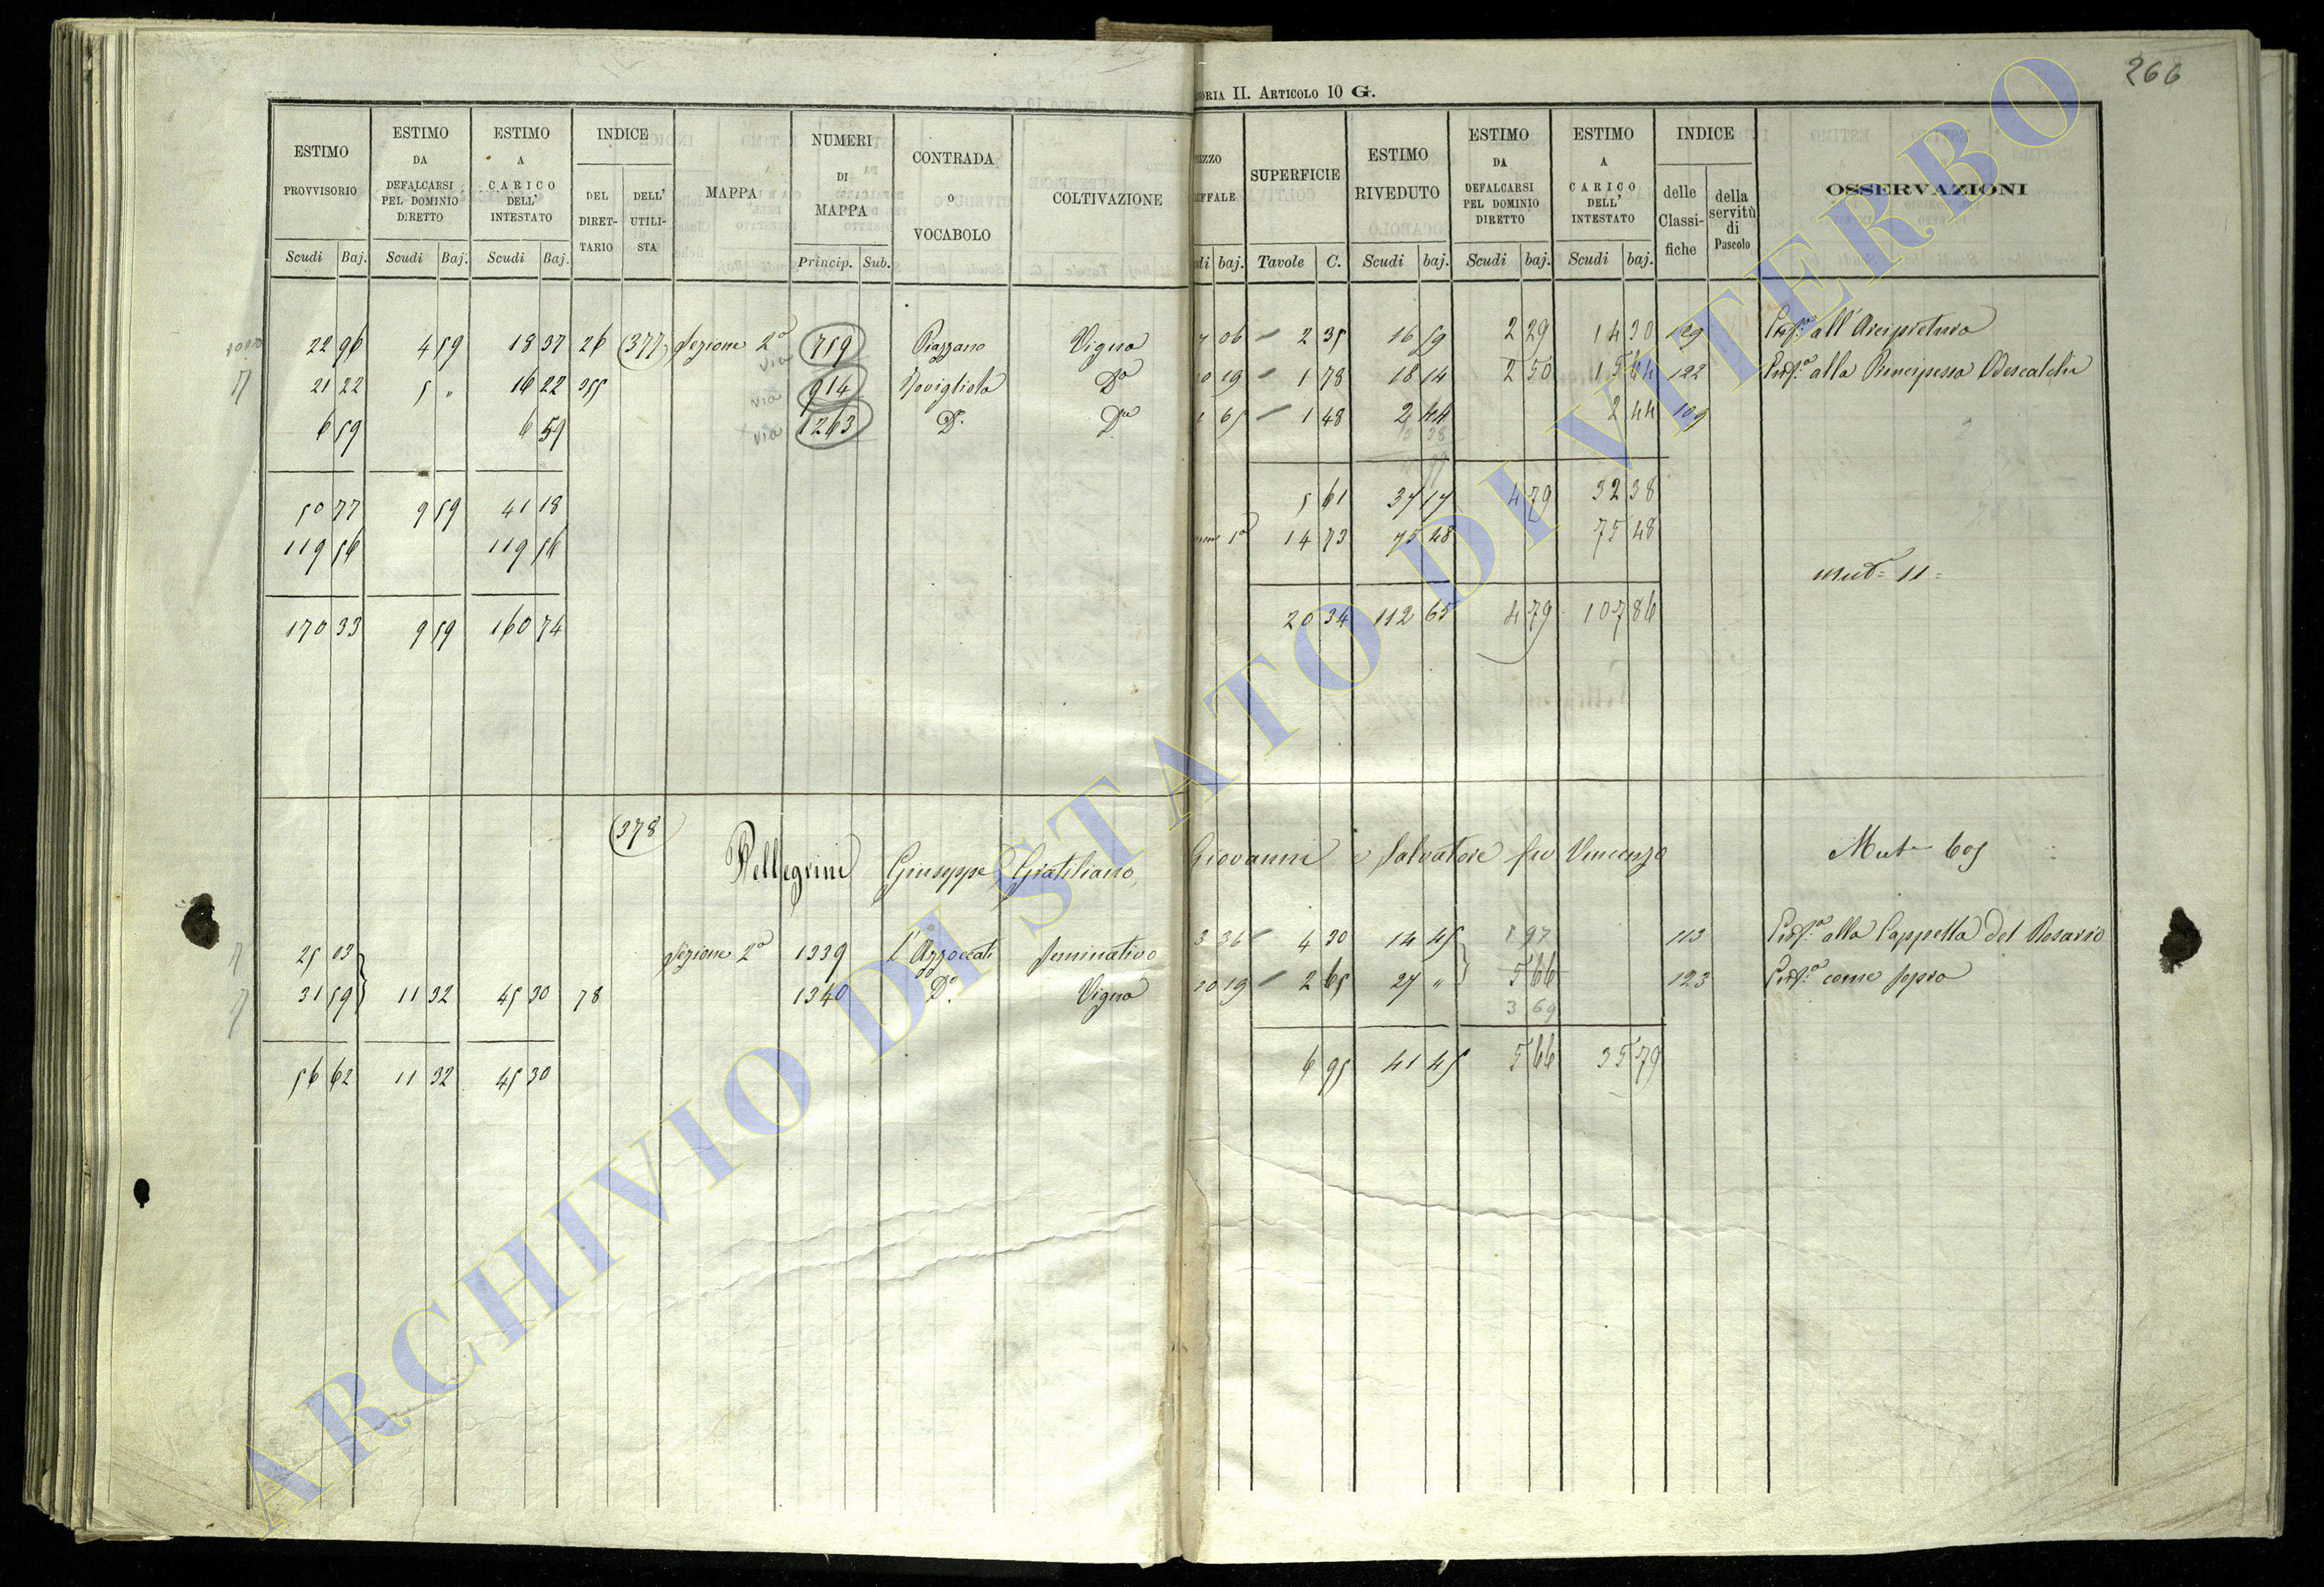 266
ORIA II. ARTICOLO 10 G.
ESTIMO PROVVISORIO | ESTIMO DA DEFALCARSI PEL DOMINIO DIRETTO | ESTIMO A CARICO DELL' INTESTATO | INDICE | MAPPA | NUMERI DI MAPPA | CONTRADA O VOCABOLO | COLTIVAZIONE | EZZO EFFALE | SUPERFICIE | ESTIMO RIVEDUTO | ESTIMO DA DEFALCARSI PEL DOMINIO DIRETTO | ESTIMO A CARICO DELL' INTESTATO | INDICE | OSSERVAZIONI
DEL DIRETTARIO | DELL' UTILISTA | delle Classifiche | della servitù di Pascolo
Scudi | Baj. | Scudi | Baj. | Scudi | Baj. | Princip. | Sub. | di | baj. | Tavole | C. | Scudi | baj. | Scudi | baj. | Scudi | baj.
22 96 | 4 59 | 18 37 | 26 | 377 | Sezione 2a | 759 | Piazzano | Vigna | 7 06 | 2 35 | 16 59 | 2 29 | 14 30 | 129 | all'Arcipretura
21 22 | 5 " | 16 22 | 255 | via | 914 | Novigliola | Da | 10 19 | 1 78 | 18 14 | 2 50 | 15 64 | 122 | alla Principessa Odescalchi
6 59 | 6 59 | via | 1263 | Da | Da | 1 65 | 1 48 | 2 44 | 2 44 | 109
50 77 | 9 59 | 41 18 | 5 61 | 37 17 | 4 79 | 32 38
119 56 | 119 56 | 1a | 14 73 | 75 48 | 75 48
Mut= 11=
170 33 | 9 59 | 160 74 | 20 34 | 112 65 | 4 79 | 107 86
378 | Pellegrini Giuseppe Gratiliano, Giovanni e Salvatore fu Vincenzo | Mut= 605
25 03 | Sezione 2a | 1339 | l'Azzoccati | Seminativo | 3 36 | 4 30 | 14 45 | 1 97 | 113 | alla Cappella del Rosario
31 59 | 11 32 | 45 30 | 78 | 1340 | Do | Vigna | 10 19 | 2 65 | 27 " | 5 66 | 123 | come sopra
3 69
56 62 | 11 32 | 45 30 | 6 95 | 41 45 | 5 66 | 35 79
ARCHIVIO DI STATO DI VITERBO